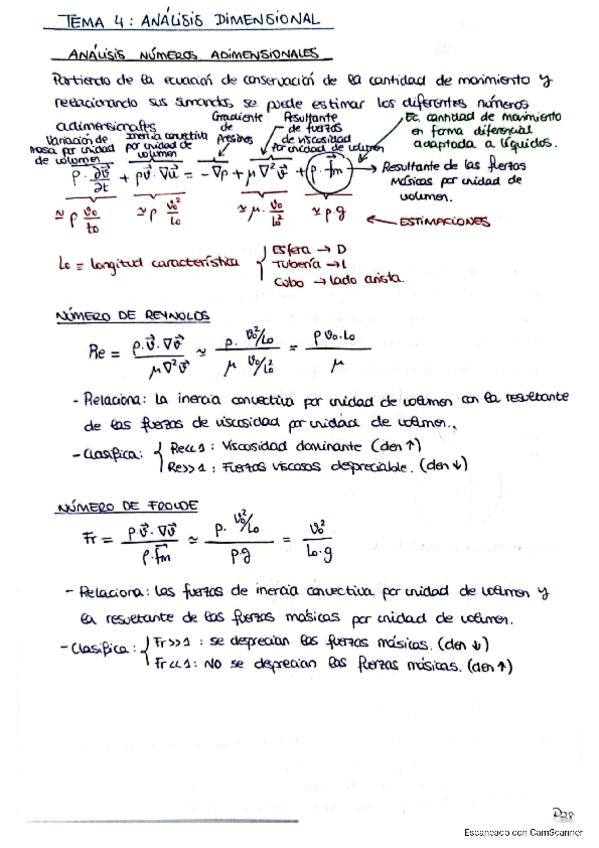 TEMA 4: ANÁLISIS DIMENSIONAL
ANÁLISIS NÚMEROS ADIMENSIONALES
Partiendo de la ecuación de conservación de la cantidad de movimiento y
relacionando sus sumandos, se puede estimar los diferentes números
adimensionales
Variación de masa por unidad de volumen
Inercia convectiva por unidad de volumen
Gradiente de Presiones
Resultante de fuerzas de viscosidad por unidad de volumen
Ec. cantidad de movimiento en forma diferencial adaptada a líquidos.
ρ · ∂v⃗/∂t + ρv⃗ · ∇v⃗ = -∇p + μ∇²v⃗ + ρ · f⃗m → Resultante de las fuerzas másicas por unidad de volumen.
≈ ρ v₀/t₀   ≈ ρ v₀²/L₀   ≈ μ · v₀/L₀²   ≈ ρ · g ← ESTIMACIONES
L₀ ≡ longitud característica { Esfera → D
Tubería → L
Cubo → lado arista.
NÚMERO DE REYNOLDS
Re = ρ·v⃗·∇v⃗ / μ∇²v⃗ ≈ ρ · v₀²/L₀ / μ v₀/L₀² = ρ v₀·L₀ / μ
- Relaciona: la inercia convectiva por unidad de volumen con la resultante
de las fuerzas de viscosidad por unidad de volumen.
- Clasifica: { Re<<1 : Viscosidad dominante (den ↑)
Re>>1 : Fuerzas viscosas despreciable. (den ↓)
NÚMERO DE FROUDE
Fr = ρ·v⃗·∇v⃗ / ρ·f⃗m ≈ ρ · v₀²/L₀ / ρ·g = v₀² / L₀·g
- Relaciona: las fuerzas de inercia convectiva por unidad de volumen y
la resultante de las fuerzas másicas por unidad de volumen.
- Clasifica: { Fr>>1 : se deprecian las fuerzas másicas. (den ↓)
Fr<<1: NO se deprecian las fuerzas másicas. (den ↑)
P28
Escaneado con CamScanner